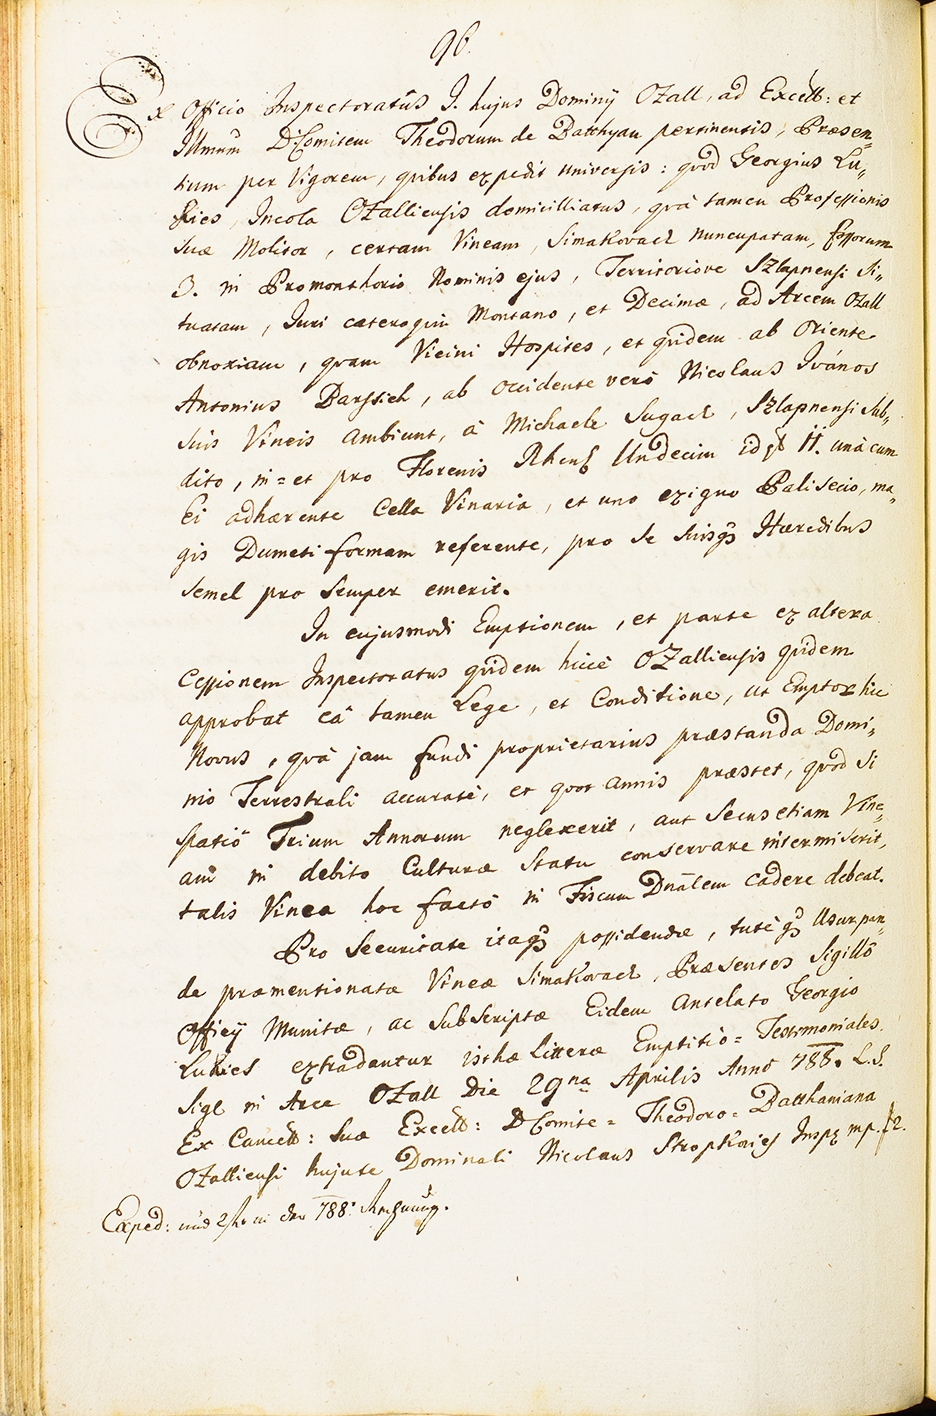 96.
Ex Officio Inspectoratûs I. hujus Dominÿ OZall, ad Excell: et
Illmum D Comitem Theodorum de Batthyan pertinentis, Præsen„
tium per Vigorem, quibus expedit universis: quod Georgius Lu„
kies, Incola OZalliensis domicilliatus, quà tamen Professionis
suæ Molitor, certam Vineam, Simakovach nuncupatam, fossorum
3. in Promonthorio Nominis ejus, Territorióve Szlapnensi Si„
tuatam, Juri cæteroquin Montano, et Decimæ, ad Arcem Ozall
obnoxiam, quam Vicini Hospites, et quidem ab Oriente
Antonius Barssich, ab occidente verò Nicolaus Ivános
Suis Vineis ambiunt, à Michaele Sugach, Szlapnensi Sub„
dito, in = et pro Florenis Rhens Undecim id est 11. unà cum
Ei adhærente Cella Vinaria, et uno exiguo Palisecio, ma„
gis Dumeti formam referente, pro se Suisq3 Hæredibus
semel pro Semper emerit.
In cujusmodi Emptionem, et parte ex altera
Cessionem Inspectoratus quidem hicce OZalliensis quidem
approbat eâ tamen Lege, et Conditione, ut Emptor hic
Novus, quà jam fundi proprietarius præstanda Domi„
nio Terrestrali accuratè, et quot annis præstet, quod si
spatiô Trium Annorum neglexerit, aut Secus etiam Vine„
am in debito Culturæ Statu conservare intermiserit,
talis Vinea hoc factô in Fiscum Dnalem cadere debeat.
Pro Securitate itaq3 possidendæ, tutèq3 Usurpan„
dæ præmentionatæ Vineæ Simakovach, Præsentes Sigillô
Officÿ Munitæ, ac Subscriptæ Eidem Antelato Georgio
Lukies extradantur isthæ Litteræ Emptitiò = Testimoniales.
Sigl in Arce OZall Die 29na Aprilis Annô 788. L.S.
Ex Cancell: Suæ Excell: D Comite = Theodoro = Batthaniana
OZalliensi hujate Dominali Nicolaus Stropkovies Insp mp.
Exped: und 2 in der 788: Rechnung.